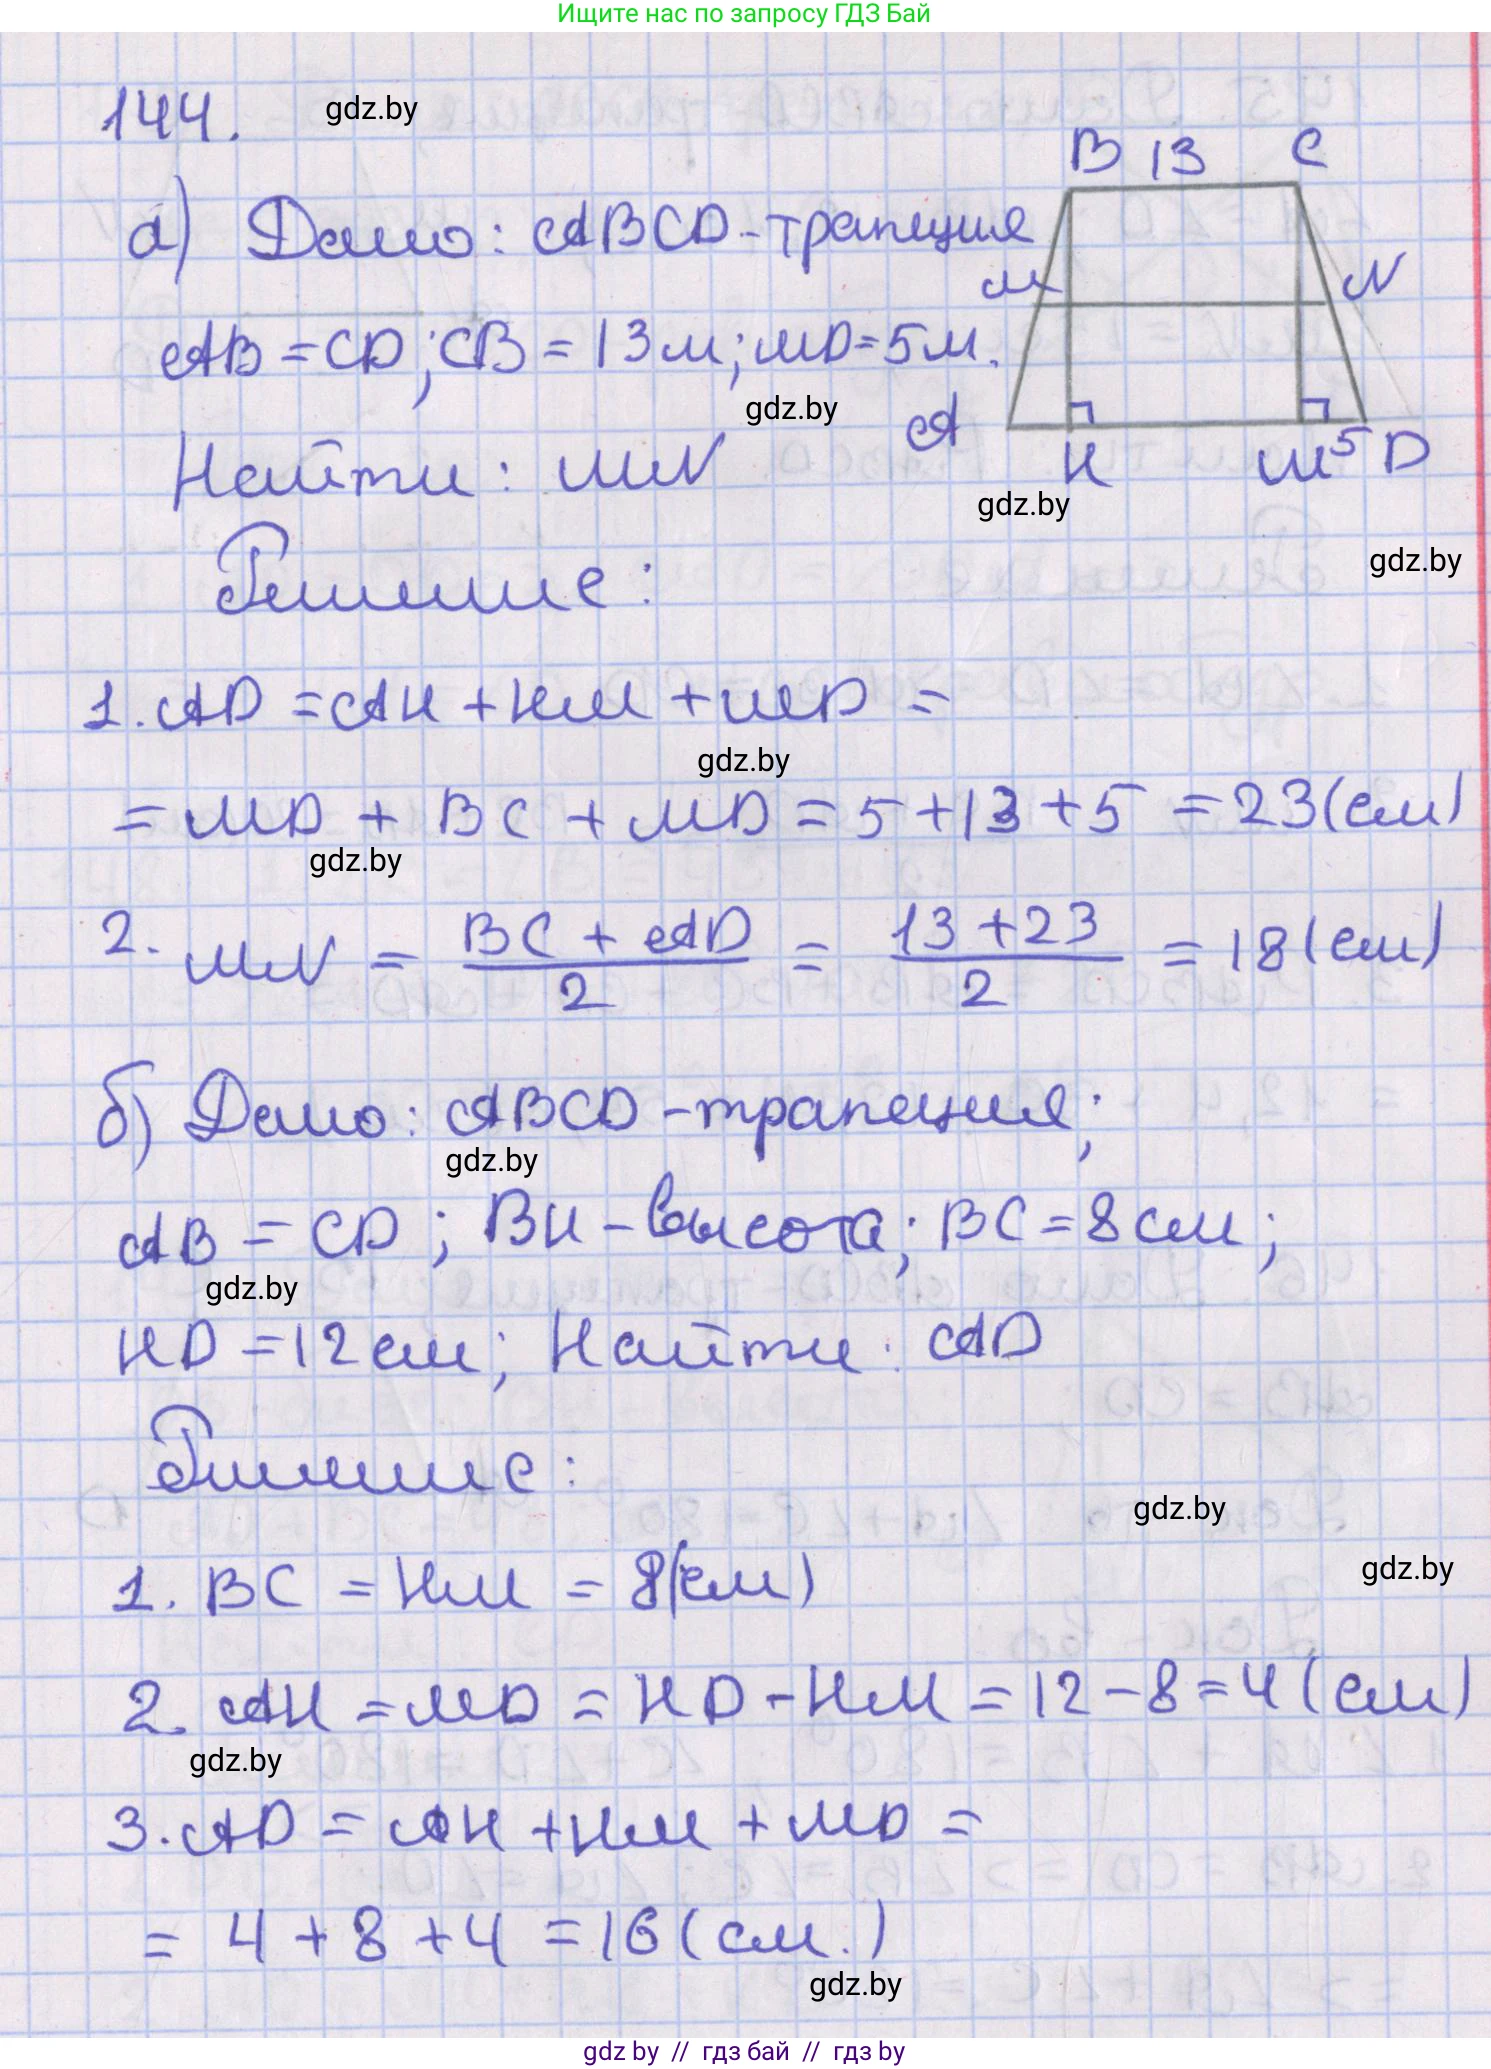 Ищите нас по запросу ГДЗ Бай
144.
gdz.by
B 13 C
а) Дано: ABCD-трапеция
M N
AB = CD; CB = 13м; MD=5м.
gdz.by
A H M 5 D
Найти: MN
gdz.by
Решение:
gdz.by
1. AD = AH + HM + MD =
gdz.by
= MD + BC + MD = 5 + 13 + 5 = 23(см)
gdz.by
2. MN = BC + AD / 2 = 13 + 23 / 2 = 18 (см)
б) Дано: ABCD - трапеция;
gdz.by
AB = CD; BH - высота; BC = 8 см;
gdz.by
HD = 12 см; Найти: AD
Решение:
gdz.by
1. BC = HM = 8(см)
gdz.by
2. AH = MD = HD - HM = 12 - 8 = 4 (см)
gdz.by
3. AD = AH + HM + MD =
= 4 + 8 + 4 = 16 (см.)
gdz.by
gdz.by // гдз бай // гдз by